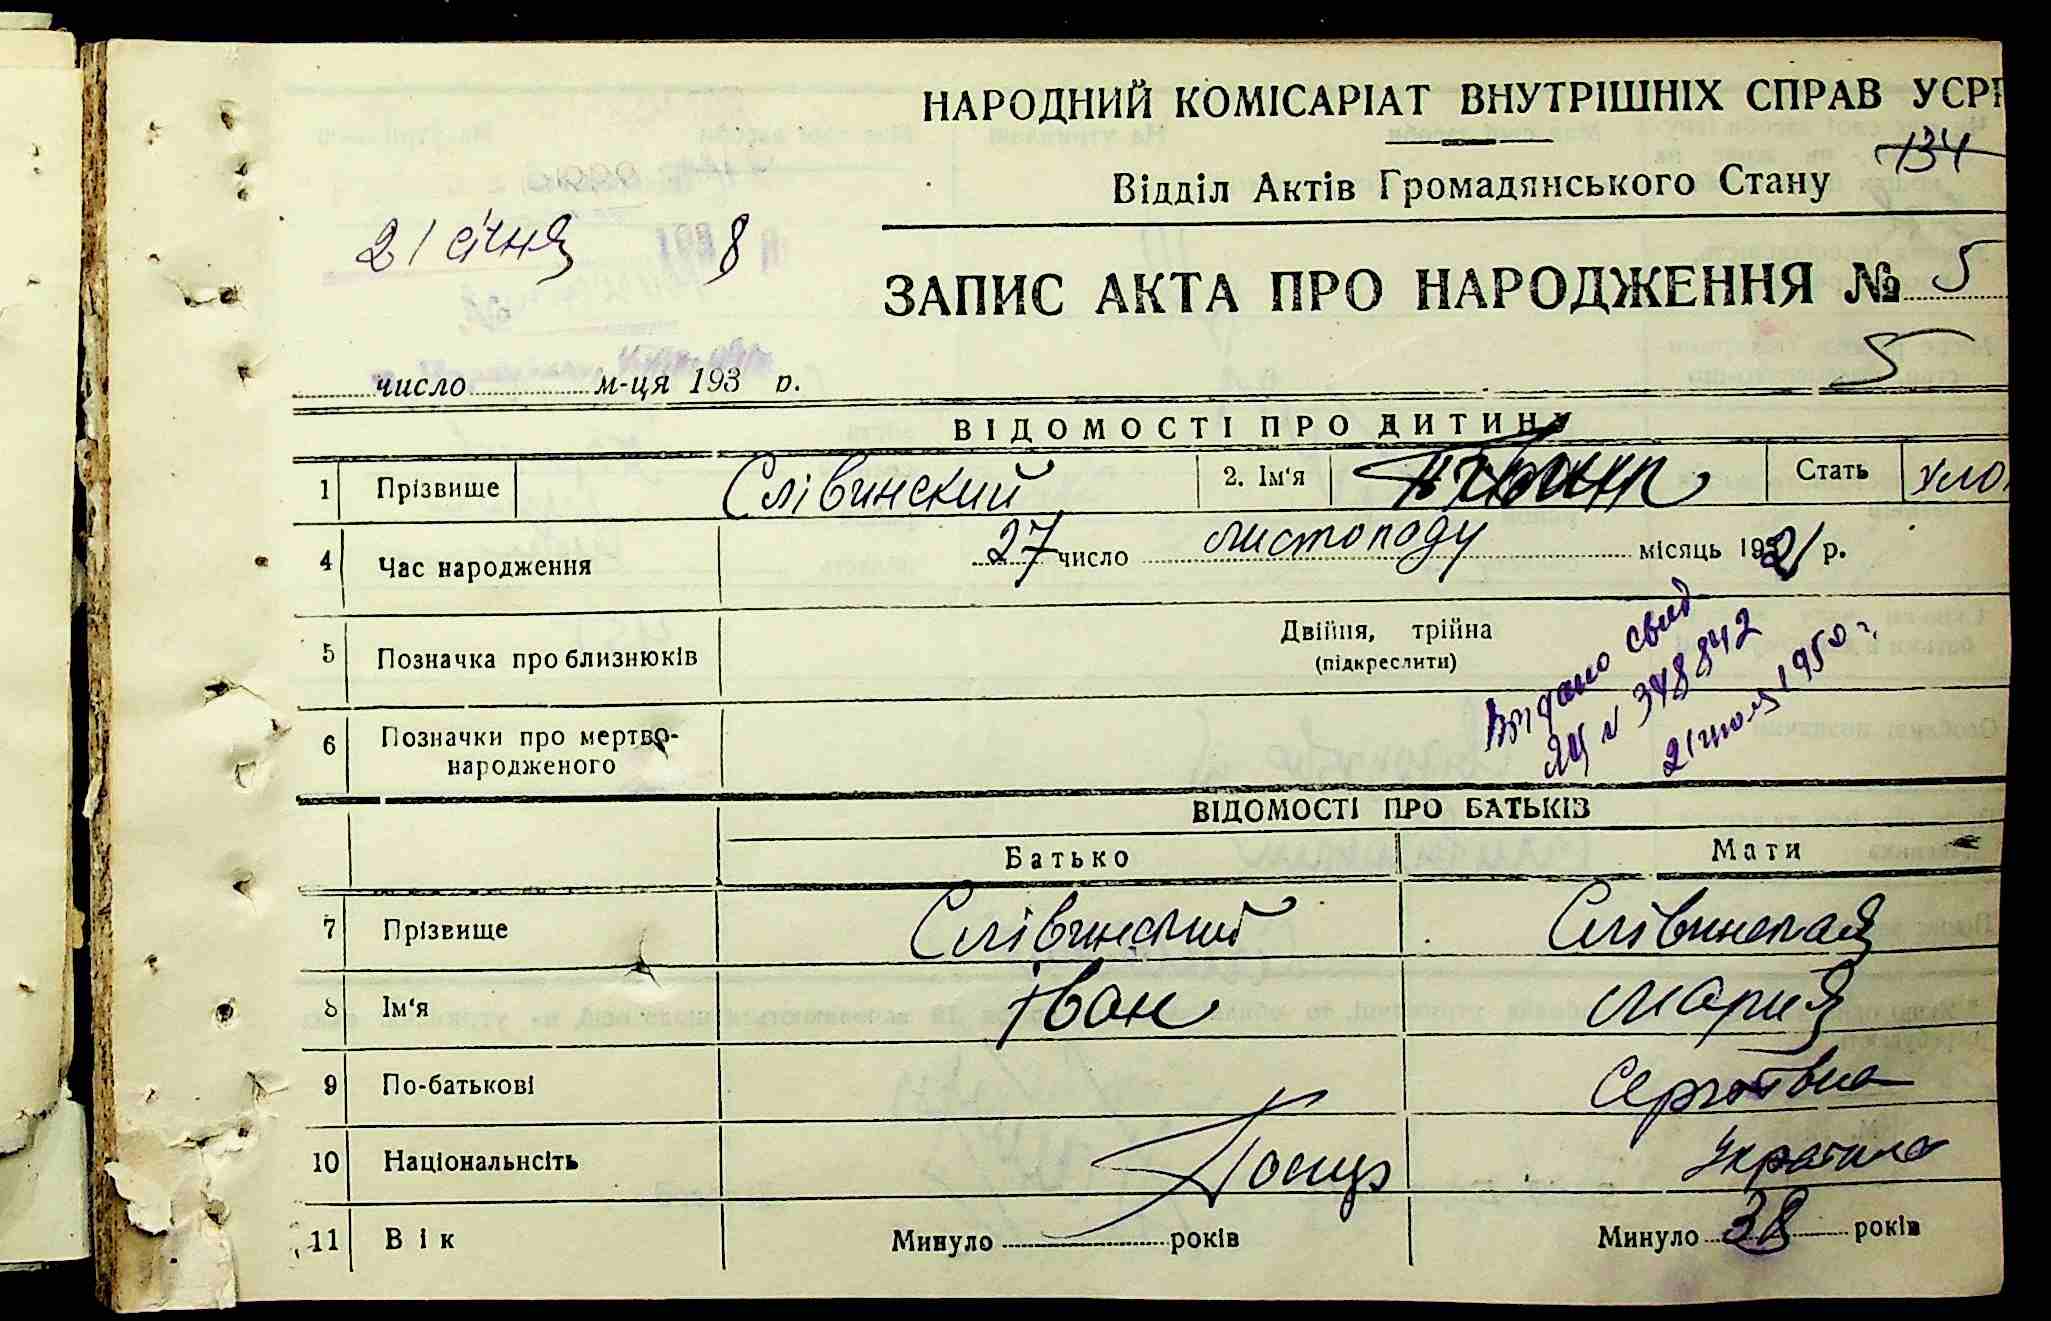 НАРОДНИЙ КОМІСАРІАТ ВНУТРІШНІХ СПРАВ УСРР
134
Відділ Актів Громадянського Стану
21 січня 8
ЗАПИС АКТА ПРО НАРОДЖЕННЯ № 5
5
число м-ця 193 р.
ВІДОМОСТІ ПРО ДИТИНУ
1 Прізвище Слівинский 2. Ім'я Стать хло
4 Час народження 27 число листопаду місяць 1921 р.
5 Позначка про близнюків Двійня, трійна
(підкреслити)
Видано свид
ЯЦ N 348842
21 1950 г.
6 Позначки про мертво-
народженого
ВІДОМОСТІ ПРО БАТЬКІВ
Батько Мати
7 Прізвище Слівинский Слівинская
8 Ім'я Іван Мария
9 По-батькові Сергіївна
10 Національнсіть Украінка
11 Вік Минуло років Минуло 38 років